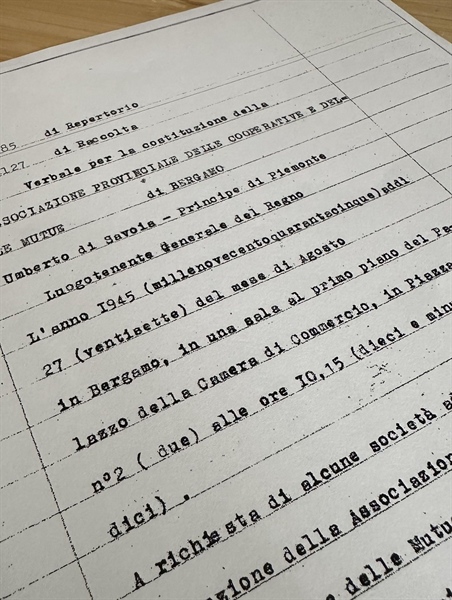 85 di Repertorio
127 di Raccolta
Verbale per la costituzione della
SSOCIAZIONE PROVINCIALE DELLE COOPERATIVE E DEL-
LE MUTUE di BERGAMO
Umberto di Savoia - Principe di Piemonte
Luogotenente Generale del Regno
L'anno I945 (millenovecentoquarantacinque)addì
27 (ventisette) del mese di Agosto
in Bergamo, in una sala al primo piano del Pa-
lazzo della Camera di Commercio, in Piazza
n°2 ( due) alle ore I0,15 (dieci e minu
dici) .
A richiesta di alcune società ad
zione della Associazion
e delle Mutu